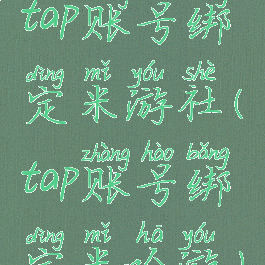 tap账号绑
dìng mǐ yóu shè
定米游社(
zhàng hào bǎng
tap账号绑
dìng mǐ hā yóu
定米哈游)